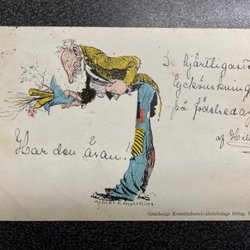 De hjärtligaste
lyckönskning
på födelsedag
af
Har den äran.
ALBERT ENGSTRÖM
Göteborgs Konstindustri-Aktiebolags förlag,